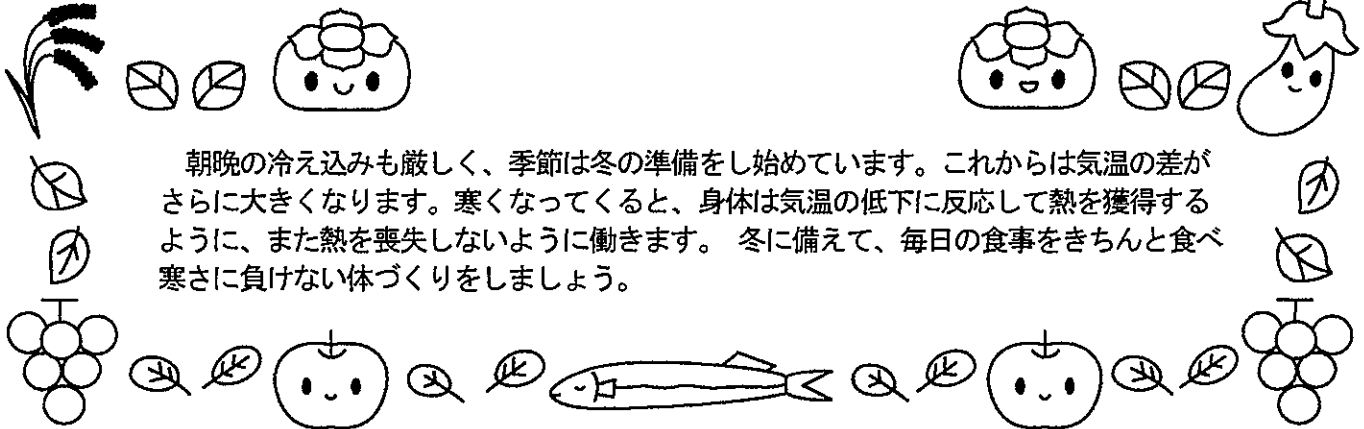 朝晩の冷え込みも厳しく、季節は冬の準備をし始めています。これからは気温の差が
さらに大きくなります。寒くなってくると、身体は気温の低下に反応して熱を獲得する
ように、また熱を喪失しないように働きます。 冬に備えて、毎日の食事をきちんと食べ
寒さに負けない体づくりをしましょう。